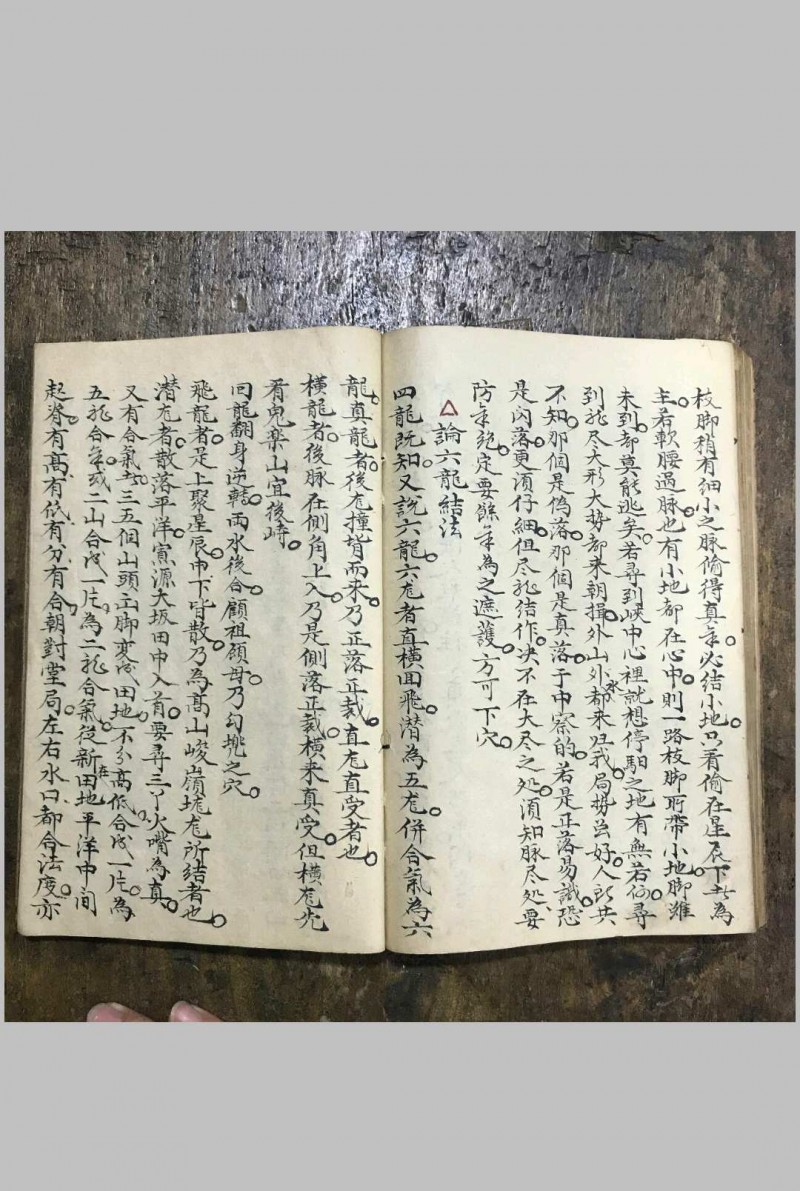 枝脚稍有細小之脉偷得真氣必結小地只看偷在星辰下者為
主若軟腰過脉也有小地都在心中則一路枝脚所帶小地脚雖
未到都莫能逃矣若尋到峽中心裡就想停駐之地有無若何尋
到龍尽大形大勢都來朝揖外山外水都來囙我局势岂好人所共
不知那個是偽落那個是真落于中察的若是正落易識恐
是闪落更須仔細但尽龍結作决不在大尽之处須知脉尽処要
防氣絕定要餘氣為之遮護方可下穴
△論六龍結法
四龍既知又說六龍六龙者直橫囬飛潛為五龙併合氣為六
龍真龍者後龙撞背而来乃正落正裁直龙直受者也
橫龍者後脉在側角上入乃是側落正裁橫来真受但橫龙先
看鬼樂山宜後崎
囬龍翻身逆轉両水後合顧祖顧母乃勾挑之穴
飛龍者是上聚星辰中下皆散乃為高山峻嶺垅龙所結者也
潛龙者散落平洋寬源大坂田中入首要尋三丫火嘴為真
又有合氣者三五個山頭立脚变成田地不分高低合成一片為
五龍合氣或二山合成一片為二龍合氣從新在田地平洋中间
起脊有高有低有分有合朝對堂局左右水口都合法度亦